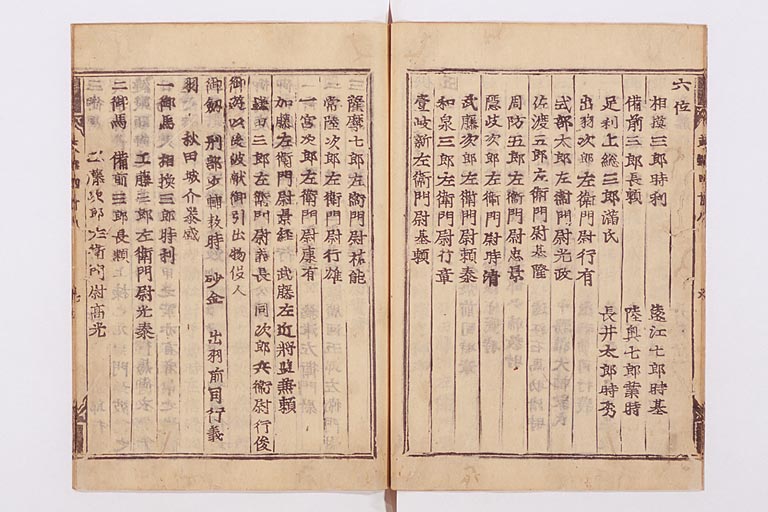 六位
相模三郎時利　遠江七郎時基
備前三郎長頼　陸奥七郎業時
足利上総三郎満氏　長井太郎時秀
出羽次郎左衛門尉行有
式部太郎左衛門尉光政
佐渡五郎左衛門尉基隆
周防五郎左衛門尉忠景
隠岐次郎左衛門尉時清
武藤次郎左衛門尉頼泰
和泉三郎左衛門尉行章
壹岐新左衛門尉基頼
薩摩七郎左衛門尉祐能
常陸次郎左衛門尉行雄
一宮次郎左衛門尉康有
加藤左衛門尉景経　武藤左近将監兼頼
鎌田三郎左衛門尉義長　同次郎兵衛尉行俊
御遊以後被献御引出物役人
御剱　刑部少輔教時　砂金　出羽前司行義
羽　秋田城介泰盛
一御馬　相模三郎時利　工藤三郎左衛門尉光泰
二御馬　備前三郎長頼
工藤次郎左衛門尉高光